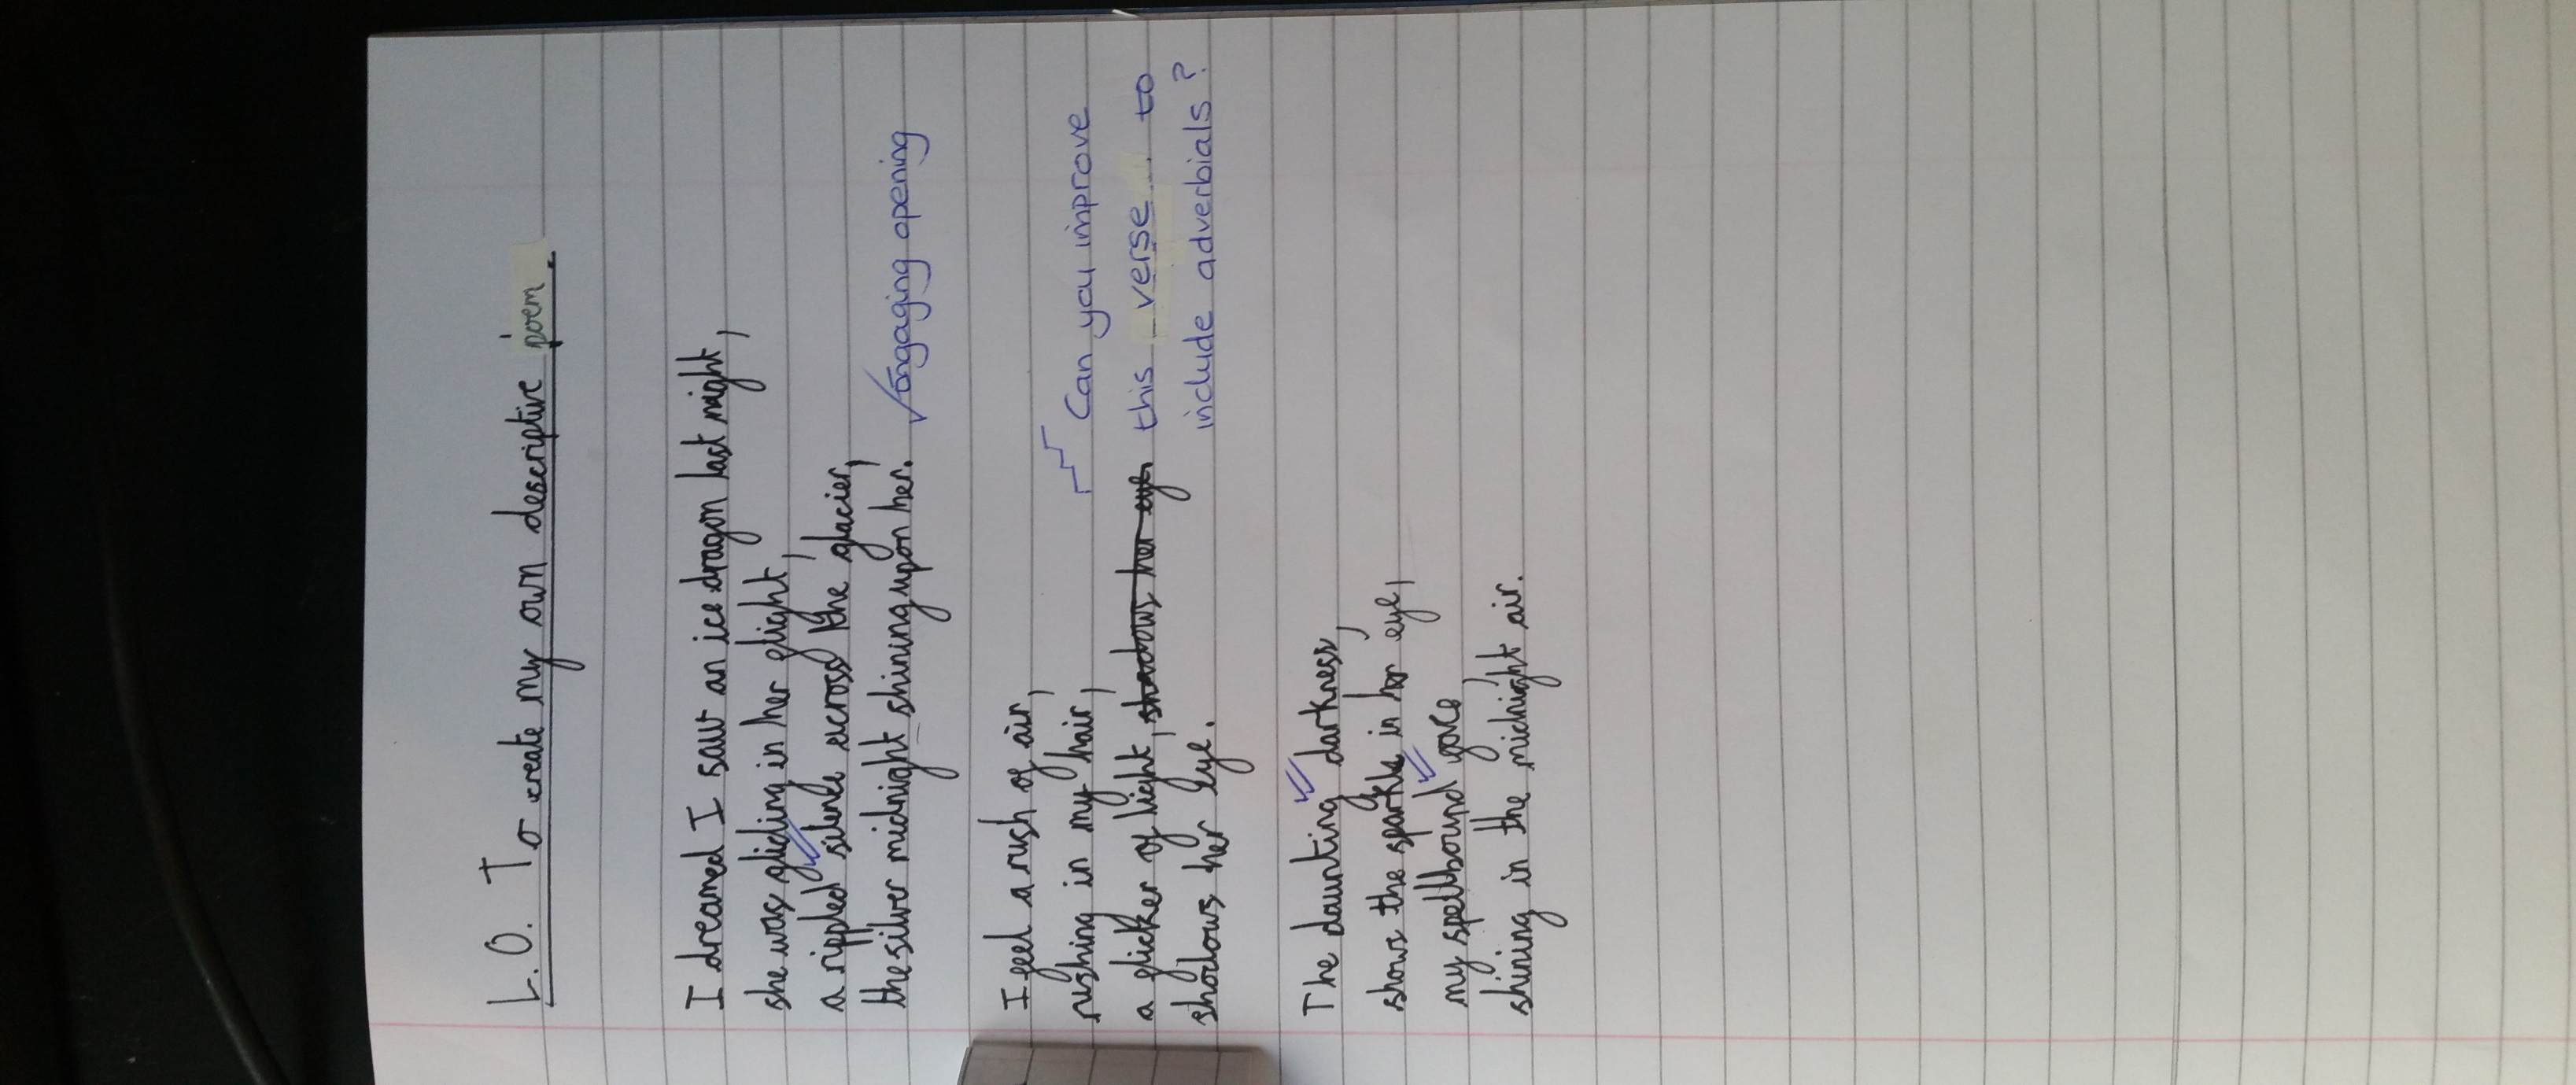 L.O. To create my own descriptive poem.
I dreamed I saw an ice dragon last night,
she was gliding in her flight,
a rippled silence across the glacier,
the silver midnight shining upon her.
✓Engaging opening
I feel a rush of air,
rushing in my hair,
a flicker of light, shadows her eye
shadows her eye.
Can you improve
this verse to
include adverbials?
The daunting darkness,
shows the sparkle in her eye,
my spellbound
shining in the midnight air.